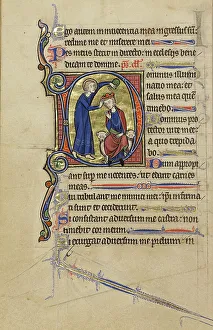 Ego autem in innocencia mea ingressus sum:
redime me et miserere mei
Pes meus stetit in directo: in ecclesiis bene
dicam te domine.
ominus illumi
natio mea: et
salus mea: quem
timebo
Dominus pro
tector vite me
e: a quo trepida
bo
Dum appropi
ant super me nocentes: ut edant carnes
meas
Qui tribulant me inimici mei: ipsi infirma
ti sunt et ceciderunt
Si consistant adversum me castra: non
timebit cor meum
Si exurgat adversum me prelium: in